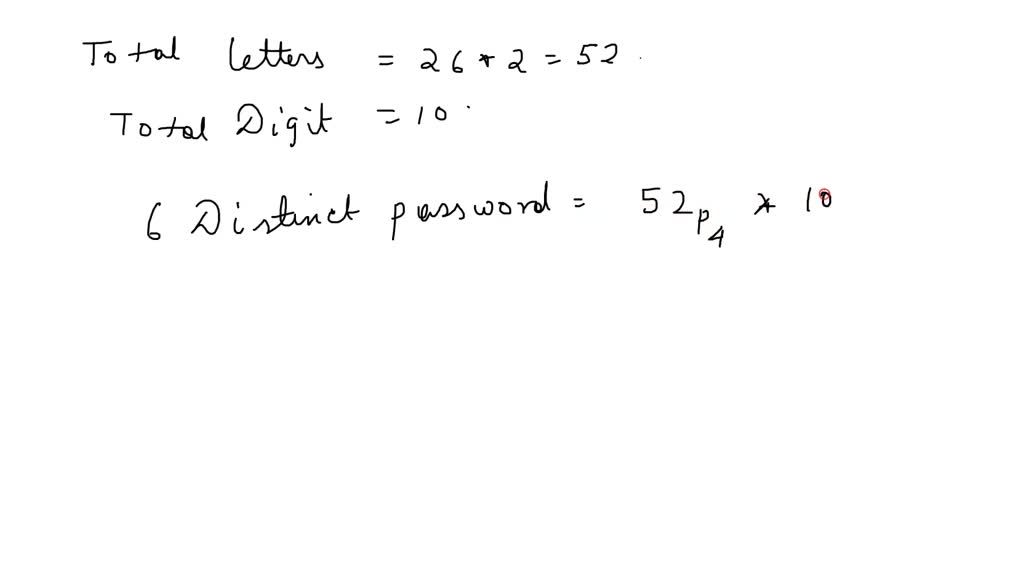 Total letters = 26 * 2 = 52
Total Digit = 10
6 Distinct password = 52p4 * 10